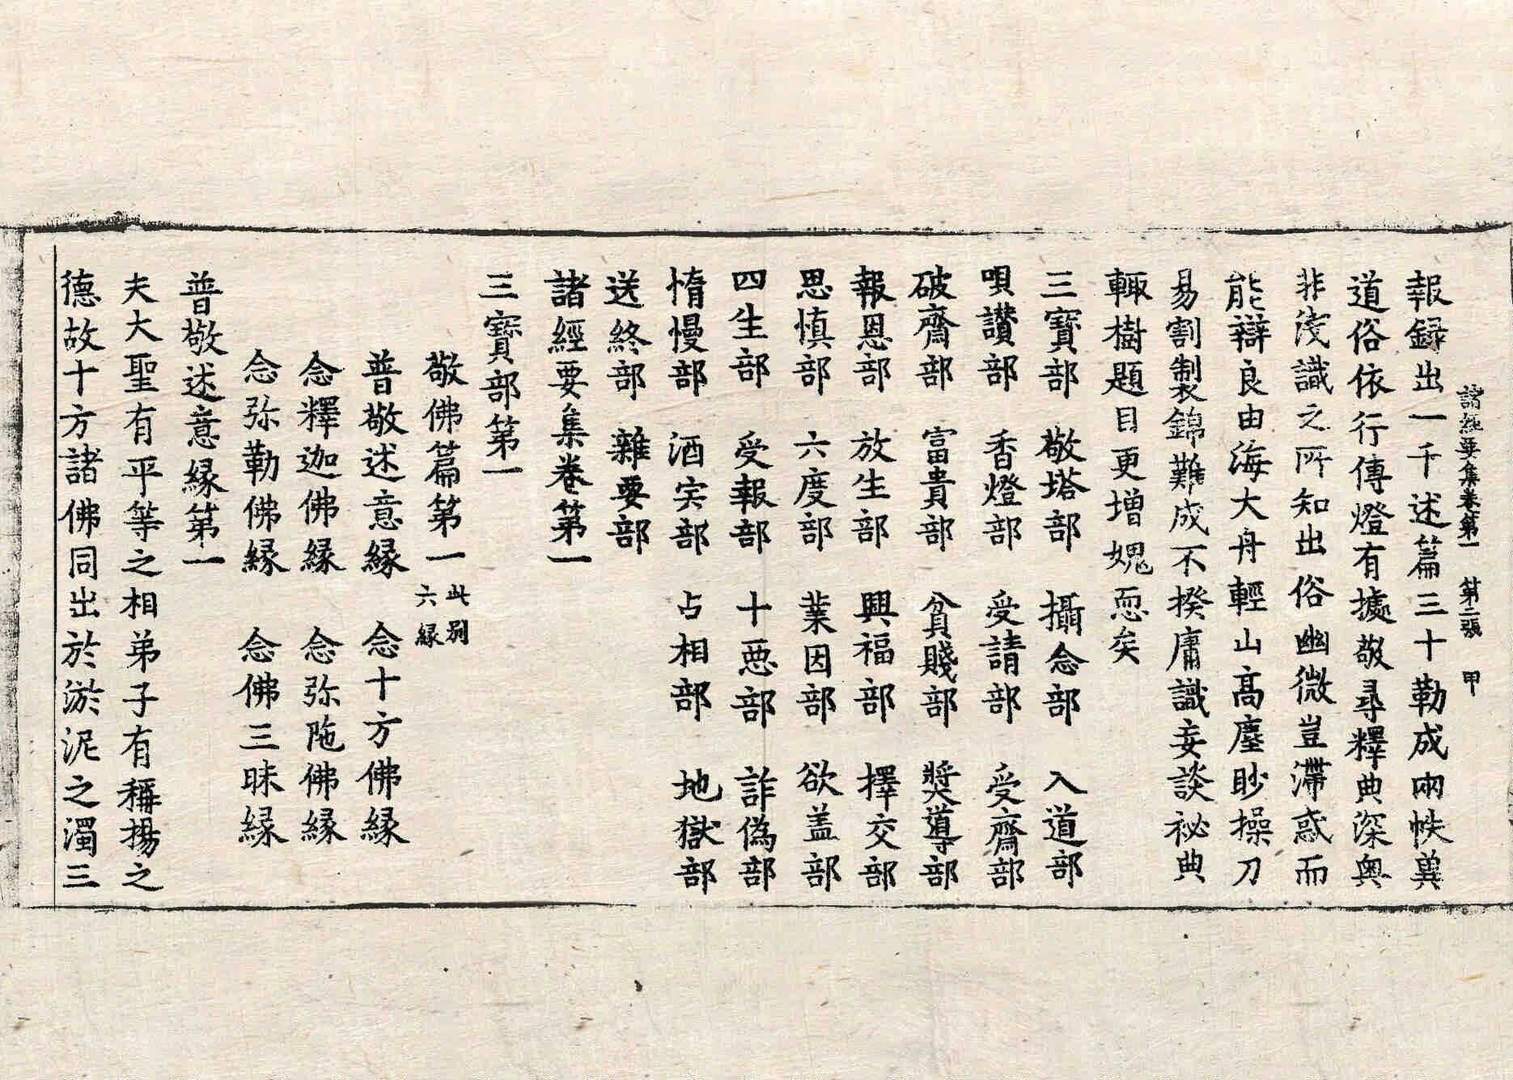 諸經要集卷第一 第二張 甲
報録出一千述篇三十勒成兩帙冀
道俗依行傳燈有據敬尋釋典深奧
非淺識之所知出俗幽微豈滯惑而
能辯良由海大舟輕山高塵眇操刀
易割製錦難成不揆庸識妄談祕典
輙樹題目更增媿恧矣
三寶部 敬塔部 攝念部 入道部
唄讃部 香燈部 受請部 受齋部
破齋部 富貴部 貧賤部 奬導部
報恩部 放生部 興福部 擇交部
思慎部 六度部 業因部 欲盖部
四生部 受報部 十惡部 詐偽部
惰慢部 酒宍部 占相部 地獄部
送終部 雜要部
諸經要集卷第一
三寶部第一
敬佛篇第一 此別六縁
普敬述意縁 念十方佛縁
念釋迦佛縁 念弥陁佛縁
念弥勒佛縁 念佛三昧縁
普敬述意縁第一
夫大聖有平等之相弟子有稱揚之
德故十方諸佛同出於淤泥之濁三